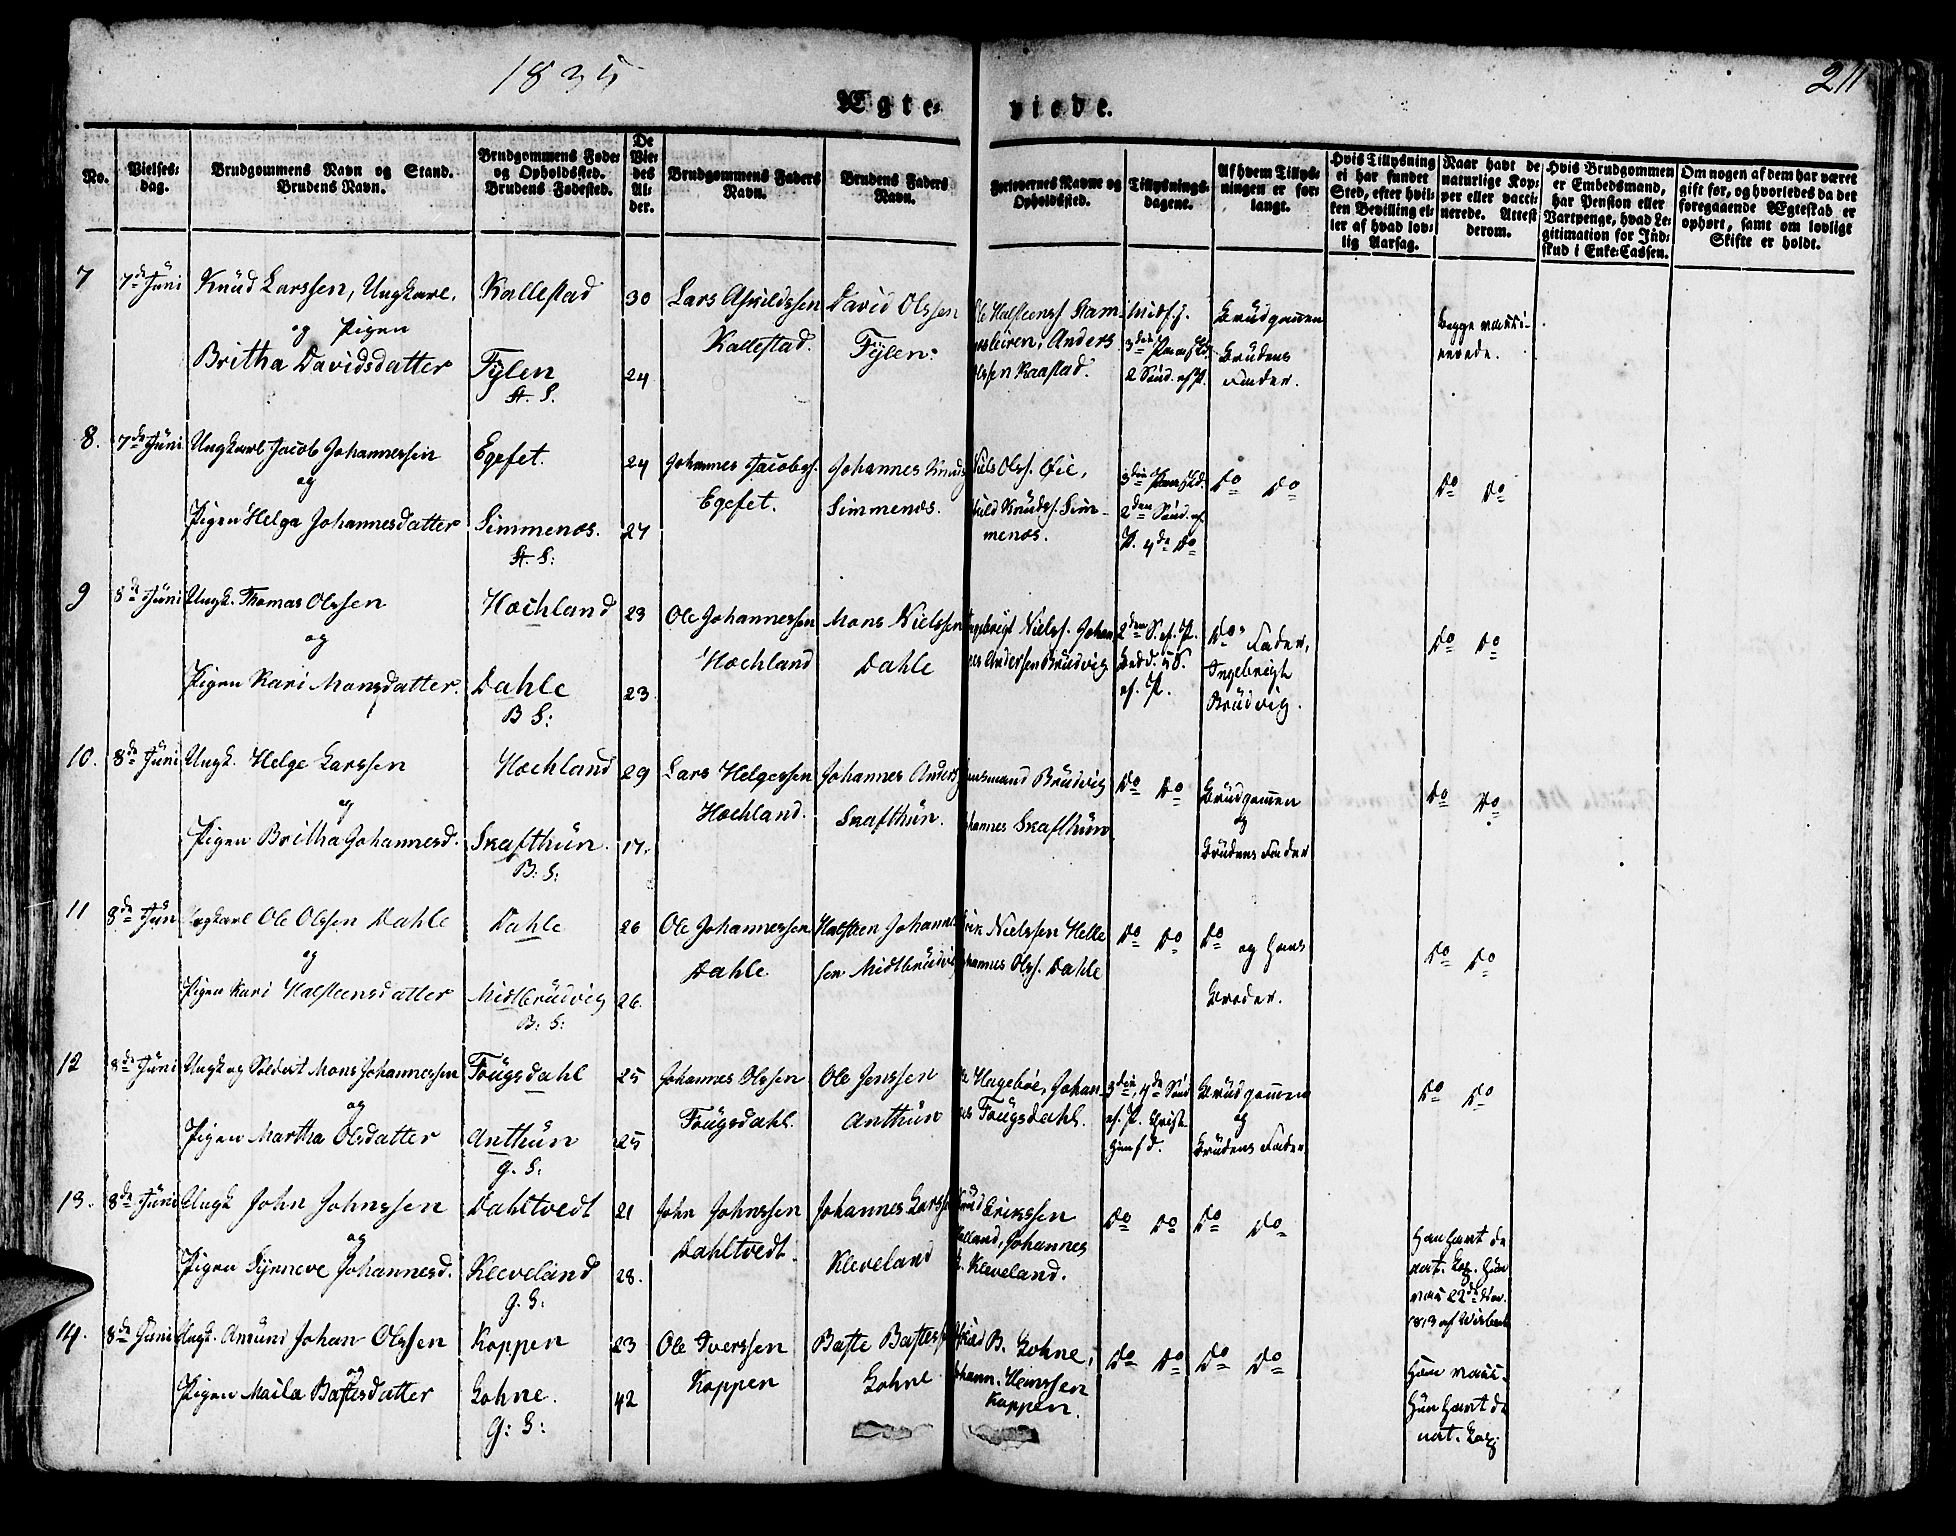 1835
211
Ægte-viede.
No.
Vielses-
dag.
Brudgommens Navn og Stand.
Brudens Navn.
Brudgommens Føde-
og Opholdssted.
Brudens Fødested.
De
Vie-
des
Al-
der.
Brudgommens Faders
Navn.
Brudens Faders
Navn.
Forlovernes Navne og
Opholdssted.
Tillysnings-
dagene.
Af hvem Tillys-
ningen er for-
langt.
Hvis Tillysning
ei har fundet
Sted, efter hvil-
ken Bevilling el-
ler af hvad lov-
lig Aarsag.
Naar havt de
naturlige Kop-
per eller vacci-
nerede. Attest
derom.
Hvis Brudgommen
er Embedsmand,
har Pension eller
Vartpenge, hvad Le-
gitimation for Ind-
skud i Enke-Cassen.
Om nogen af dem har været
gift før, og hvorledes da det
foregaaende Ægteskab er
ophørt, samt om lovligt
Skifte er holdt.
7
7de Jüni
Knüd Larssen, Ungkarl.
og Pigen
Britha Davidsdatter
Kallestad
Fÿlen
H. S.
30
24
Lars Askildssen
Kallestad.
David Olssen
Fÿlen.
Ole Halsteenss. Ram-
Anders
Olssen Kaastad.
Midf. h.
2 Sünd. ef. P.
Brüdgomen
Brüdens
Fader.
Begge vacci-
nerede.
8.
7de Jüni
Ungkarl Jacob Johannessen
og
Pigen Helga Johannesdatter
Egefet.
Simmenæs.
H. S:
24
27
Johannes Jacobss.
Egefet.
Johannes Knuds
Simmenæs.
Niels Olss. Øie,
Knüdss. Sim-
menæs.
2den Sünd. ef.
P. 4de Do
Do Do
Do Do
9
8de Jüni
Ungk. Thomas Olssen
og
Pigen Kari Monsdatter.
Hochland
Dahle
B S:
23
23.
Ole Johannessen
Hochland
Mons Nielssen
Dahle
Ingebrigt Nielss. Johan
nes Anderssen Brüdvig
2den S. ef. P.
ef. P.
Dos Fader,
Ingebrigt
Brüdvig.
Do Do
10.
8de Jüni
Ungk. Helge Larssen
og
Pigen Britha Johannesd.
Hochland
Skafthün.
B. S:
29
17.
Lars Helgessen
Hochland.
Johannes Anders
Skafthün.
Lensmand Brüdvig
Johannes Skafthün.
Do Do
Brüdgomen
og
Brüdens Fader
Do Do
11
8de Jün
Ungkarl Ole Olssen Dahle
og
Pigen Kari Halsteensdatter
Dahle
Midtbrüdvig
B: S:
26
26.
Ole Johannessen
Dahle
Halsteen Johannes
sen Midtbrüdvi
Erik Nielssen Helle
Johannes Olss. Dahle
Do Do
Do
og hans
Broder.
Do Do
12
8de Jüni
Ungk og Soldat Mons Johannessen
og
Pigen Martha Olsdatter
Foügsdahl
Anthün
G. S:
25
25
Johannes Olssen
Foügsdahl.
Ole Jenssen
Anthün
Ole Hagebøe, Johan-
nes Foügsdahl.
3die, 4de Sünd
ef. P. Christi
himf. d.
Brüdgomen
og
Brüdens Fader
Do Do
13.
8de Jüni
Ungk John Johnssen
og
Pigen Synneve Johannesd.
Dahltvedt
Kleveland
G. S:
21
28.
John Johnssen
Dahltvedt.
Johannes Larsse
Kleveland
Knüd Erikssen
Johannes
L. Kleveland.
Do Do
Do Do
Han havt de
nat. Kop. Hün
vac 22de
1813 af
14.
8de Jüni
Ungk. Amünd Johan Olssen
og
Pigen Maila Baftesdatter
Koppen
Lohne.
G: S:
23
42
Ole Iverssen
Koppen
Bafte Baftess
Lohne
B. Lohne,
Johann. Heinssen
Koppen.
Do Do
Do Do
Han vacci-
Hün havt de
nat. Kop.